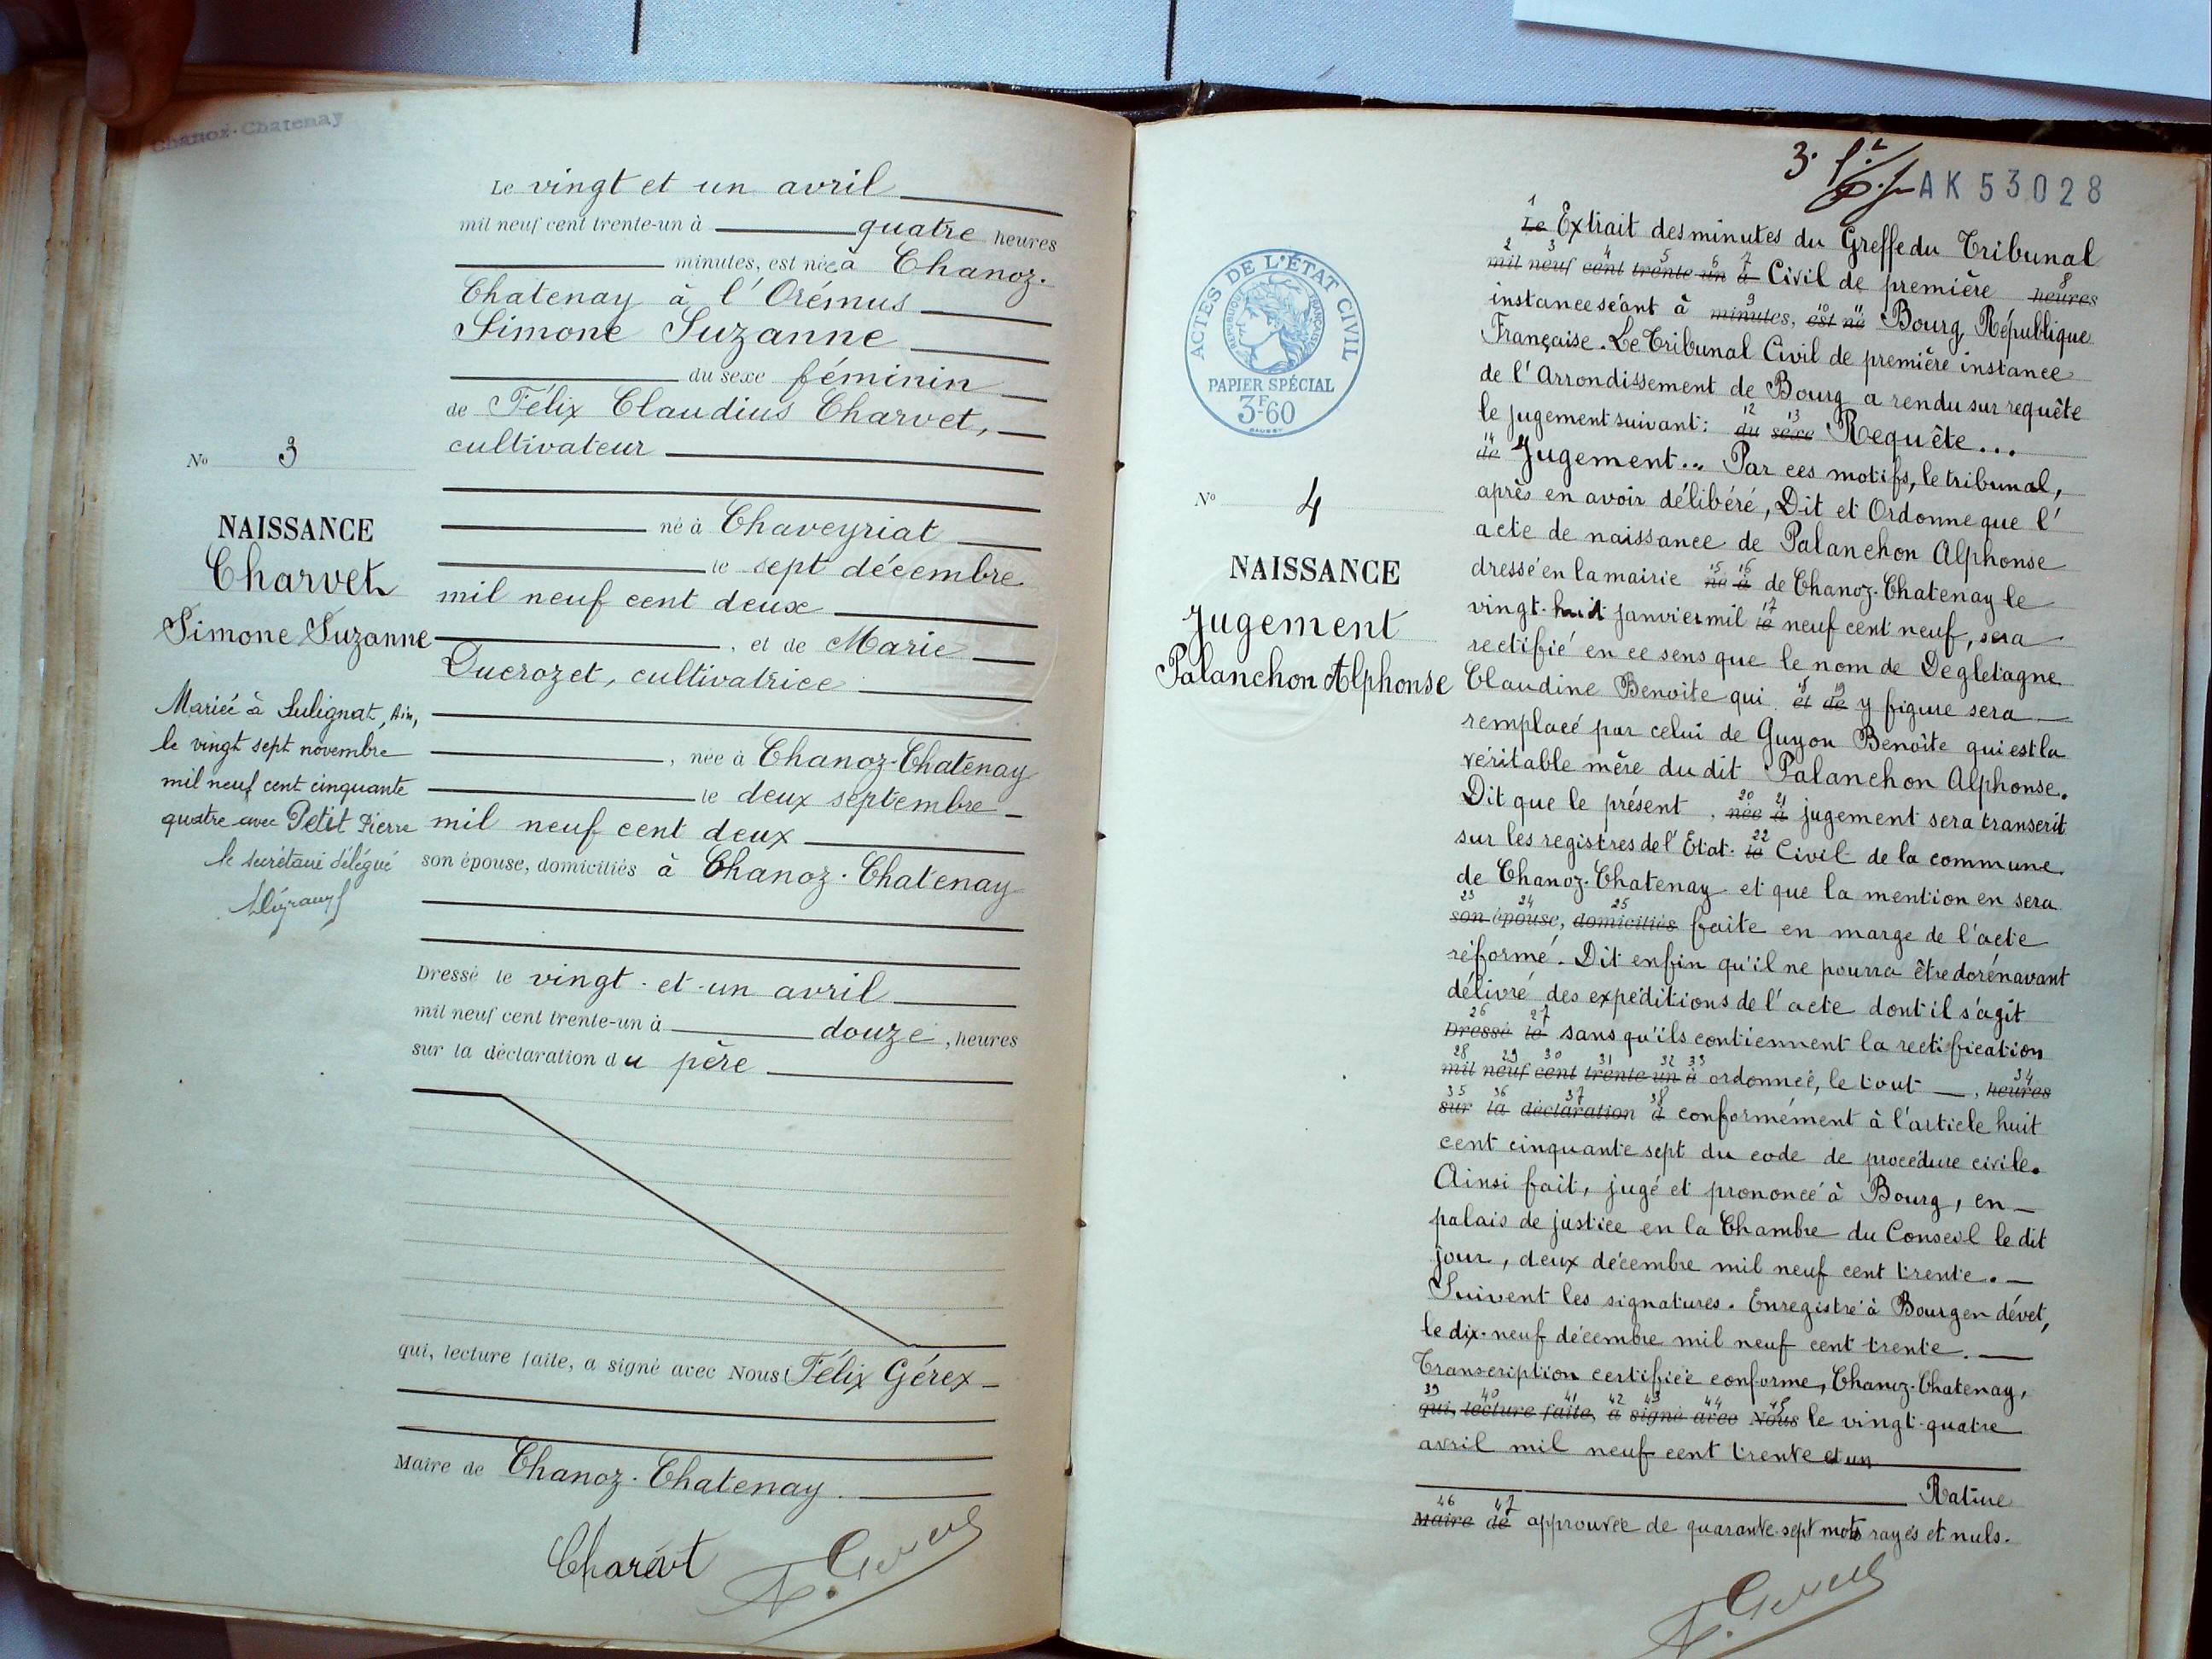 Chanoz-Chatenay
Le vingt et un avril
mil neuf cent trente-un à quatre heures
minutes, est née à Chanoz-
Chatenay à l'Orémus
Simone Suzanne
du sexe féminin
de Félix Claudius Charvet,
cultivateur
né à Chaveyriat
le sept décembre
mil neuf cent deux
, et de Marie
Ducrozet, cultivatrice
, née à Chanoz-Chatenay
le deux septembre
mil neuf cent deux
son épouse, domiciliés à Chanoz-Chatenay
Dressé le vingt-et-un avril
mil neuf cent trente-un à douze, heures
sur la déclaration du père
qui, lecture faite, a signé avec Nous Félix Gérex
Maire de Chanoz-Chatenay.
No 3
NAISSANCE
Charvet
Simone Suzanne
Mariée à Sulignat, Ain,
le vingt sept novembre
mil neuf cent cinquante
quatre avec Petit Pierre
le secrétaire délégué
3.
AK 53028
ACTES DE L'ÉTAT CIVIL
RÉPUBLIQUE FRANÇAISE
PAPIER SPÉCIAL
3F60
No 4
NAISSANCE
Jugement
Palanchon Alphonse
1
Le Extrait des minutes du Greffe du Tribunal
2 3 4 5 6 7 8
mil neuf cent trente-un à Civil de première heures
9 10 11
instance séant à minutes, est né Bourg République
Française. Le Tribunal Civil de première instance
de l'Arrondissement de Bourg a rendu sur requête
12 13
le jugement suivant: du sexe Requête...
14
de Jugement... Par ces motifs, le tribunal,
après en avoir délibéré, Dit et Ordonne que l'
acte de naissance de Palanchon Alphonse
15 16
dressé en la mairie né à de Chanoz-Chatenay le
17
vingt-huit janvier mil le neuf cent neuf, sera
rectifié en ce sens que le nom de Degletagne
18 19
Claudine Benoite qui et de y figure sera
remplacé par celui de Guyon Benoîte qui est la
véritable mère du dit Palanchon Alphonse.
20 21
Dit que le présent , née à jugement sera transcrit
22
sur les registres de l'Etat- le Civil de la commune
de Chanoz-Chatenay et que la mention en sera
23 24 25
son épouse, domiciliés faite en marge de l'acte
réformé. Dit enfin qu'il ne pourra être dorénavant
délivré des expéditions de l'acte dont il s'agit
26 27
Dressé le sans qu'ils contiennent la rectification
28 29 30 31 32 33 34
mil neuf cent trente-un à ordonnée, le tout , heures
35 36 37 38
sur la déclaration d conformément à l'article huit
cent cinquante sept du code de procédure civile.
Ainsi fait, jugé et prononcé à Bourg, en
palais de justice en la Chambre du Conseil le dit
jour, deux décembre mil neuf cent trente.
Suivent les signatures. Enregistré à Bourg en dévet,
le dix-neuf décembre mil neuf cent trente.
Transcription certifiée conforme, Chanoz-Chatenay,
39 40 41 42 43 44 45
qui, lecture faite, a signé avec Nous le vingt-quatre
avril mil neuf cent trente et un
Rature
46 47
Maire de approuvée de quarante-sept mots rayés et nuls.